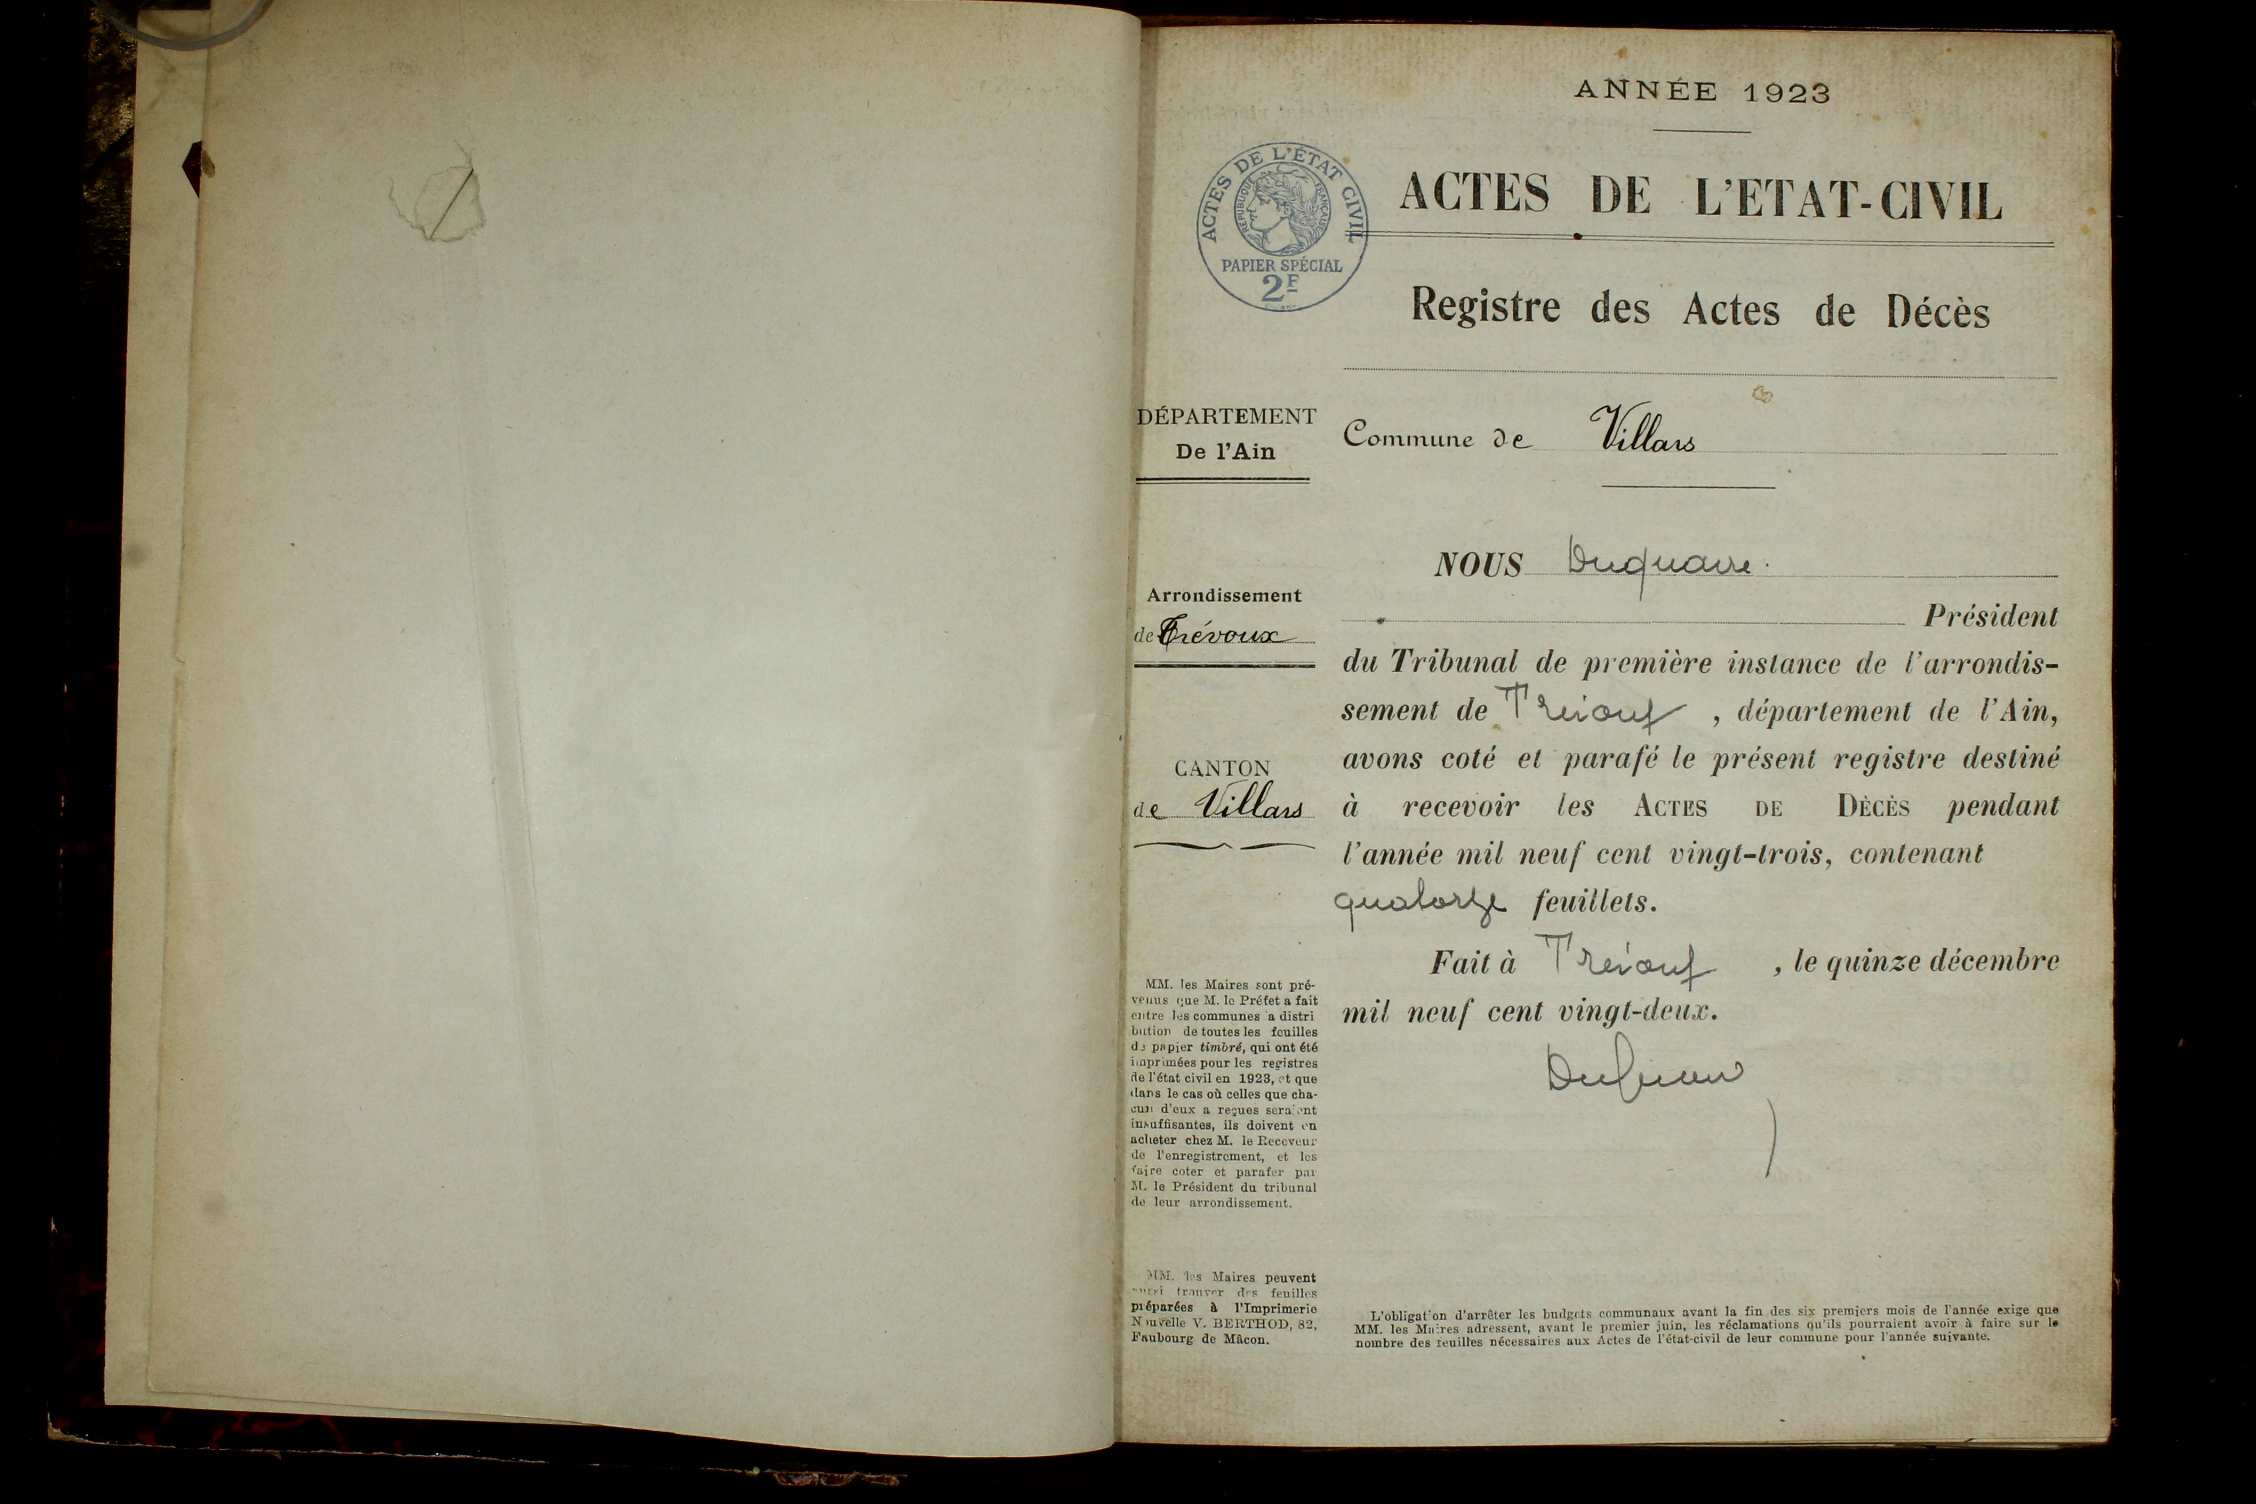 ANNÉE 1923
ACTES DE L'ÉTAT CIVIL
RÉPUBLIQUE FRANÇAISE
PAPIER SPÉCIAL
2F
ACTES DE L'ETAT-CIVIL
Registre des Actes de Décès
DÉPARTEMENT
De l'Ain
Arrondissement
de Trévoux
CANTON
de Villars
MM. les Maires sont pré-
venus que M. le Préfet a fait
entre les communes a distri
bution de toutes les feuilles
de papier timbré, qui ont été
imprimées pour les registres
de l'état civil en 1923, et que
dans le cas où celles que cha-
cun d'eux a reçues seraient
insuffisantes, ils doivent en
acheter chez M. le Receveur
de l'enregistrement, et les
faire coter et parafer par
M. le Président du tribunal
de leur arrondissement.
MM. les Maires peuvent
aussi trouver des feuilles
préparées à l'Imprimerie
Nouvelle V. BERTHOD, 82,
Faubourg de Mâcon.
Commune de Villars
NOUS Duquaire
Président
du Tribunal de première instance de l'arrondis-
sement de Trévoux, département de l'Ain,
avons coté et parafé le présent registre destiné
à recevoir les ACTES DE DÉCÈS pendant
l'année mil neuf cent vingt-trois, contenant
quatorze feuillets.
Fait à Trévoux, le quinze décembre
mil neuf cent vingt-deux.
L'obligation d'arrêter les budgets communaux avant la fin des six premiers mois de l'année exige que
MM. les Maires adressent, avant le premier juin, les réclamations qu'ils pourraient avoir à faire sur le
nombre des feuilles nécessaires aux Actes de l'état-civil de leur commune pour l'année suivante.